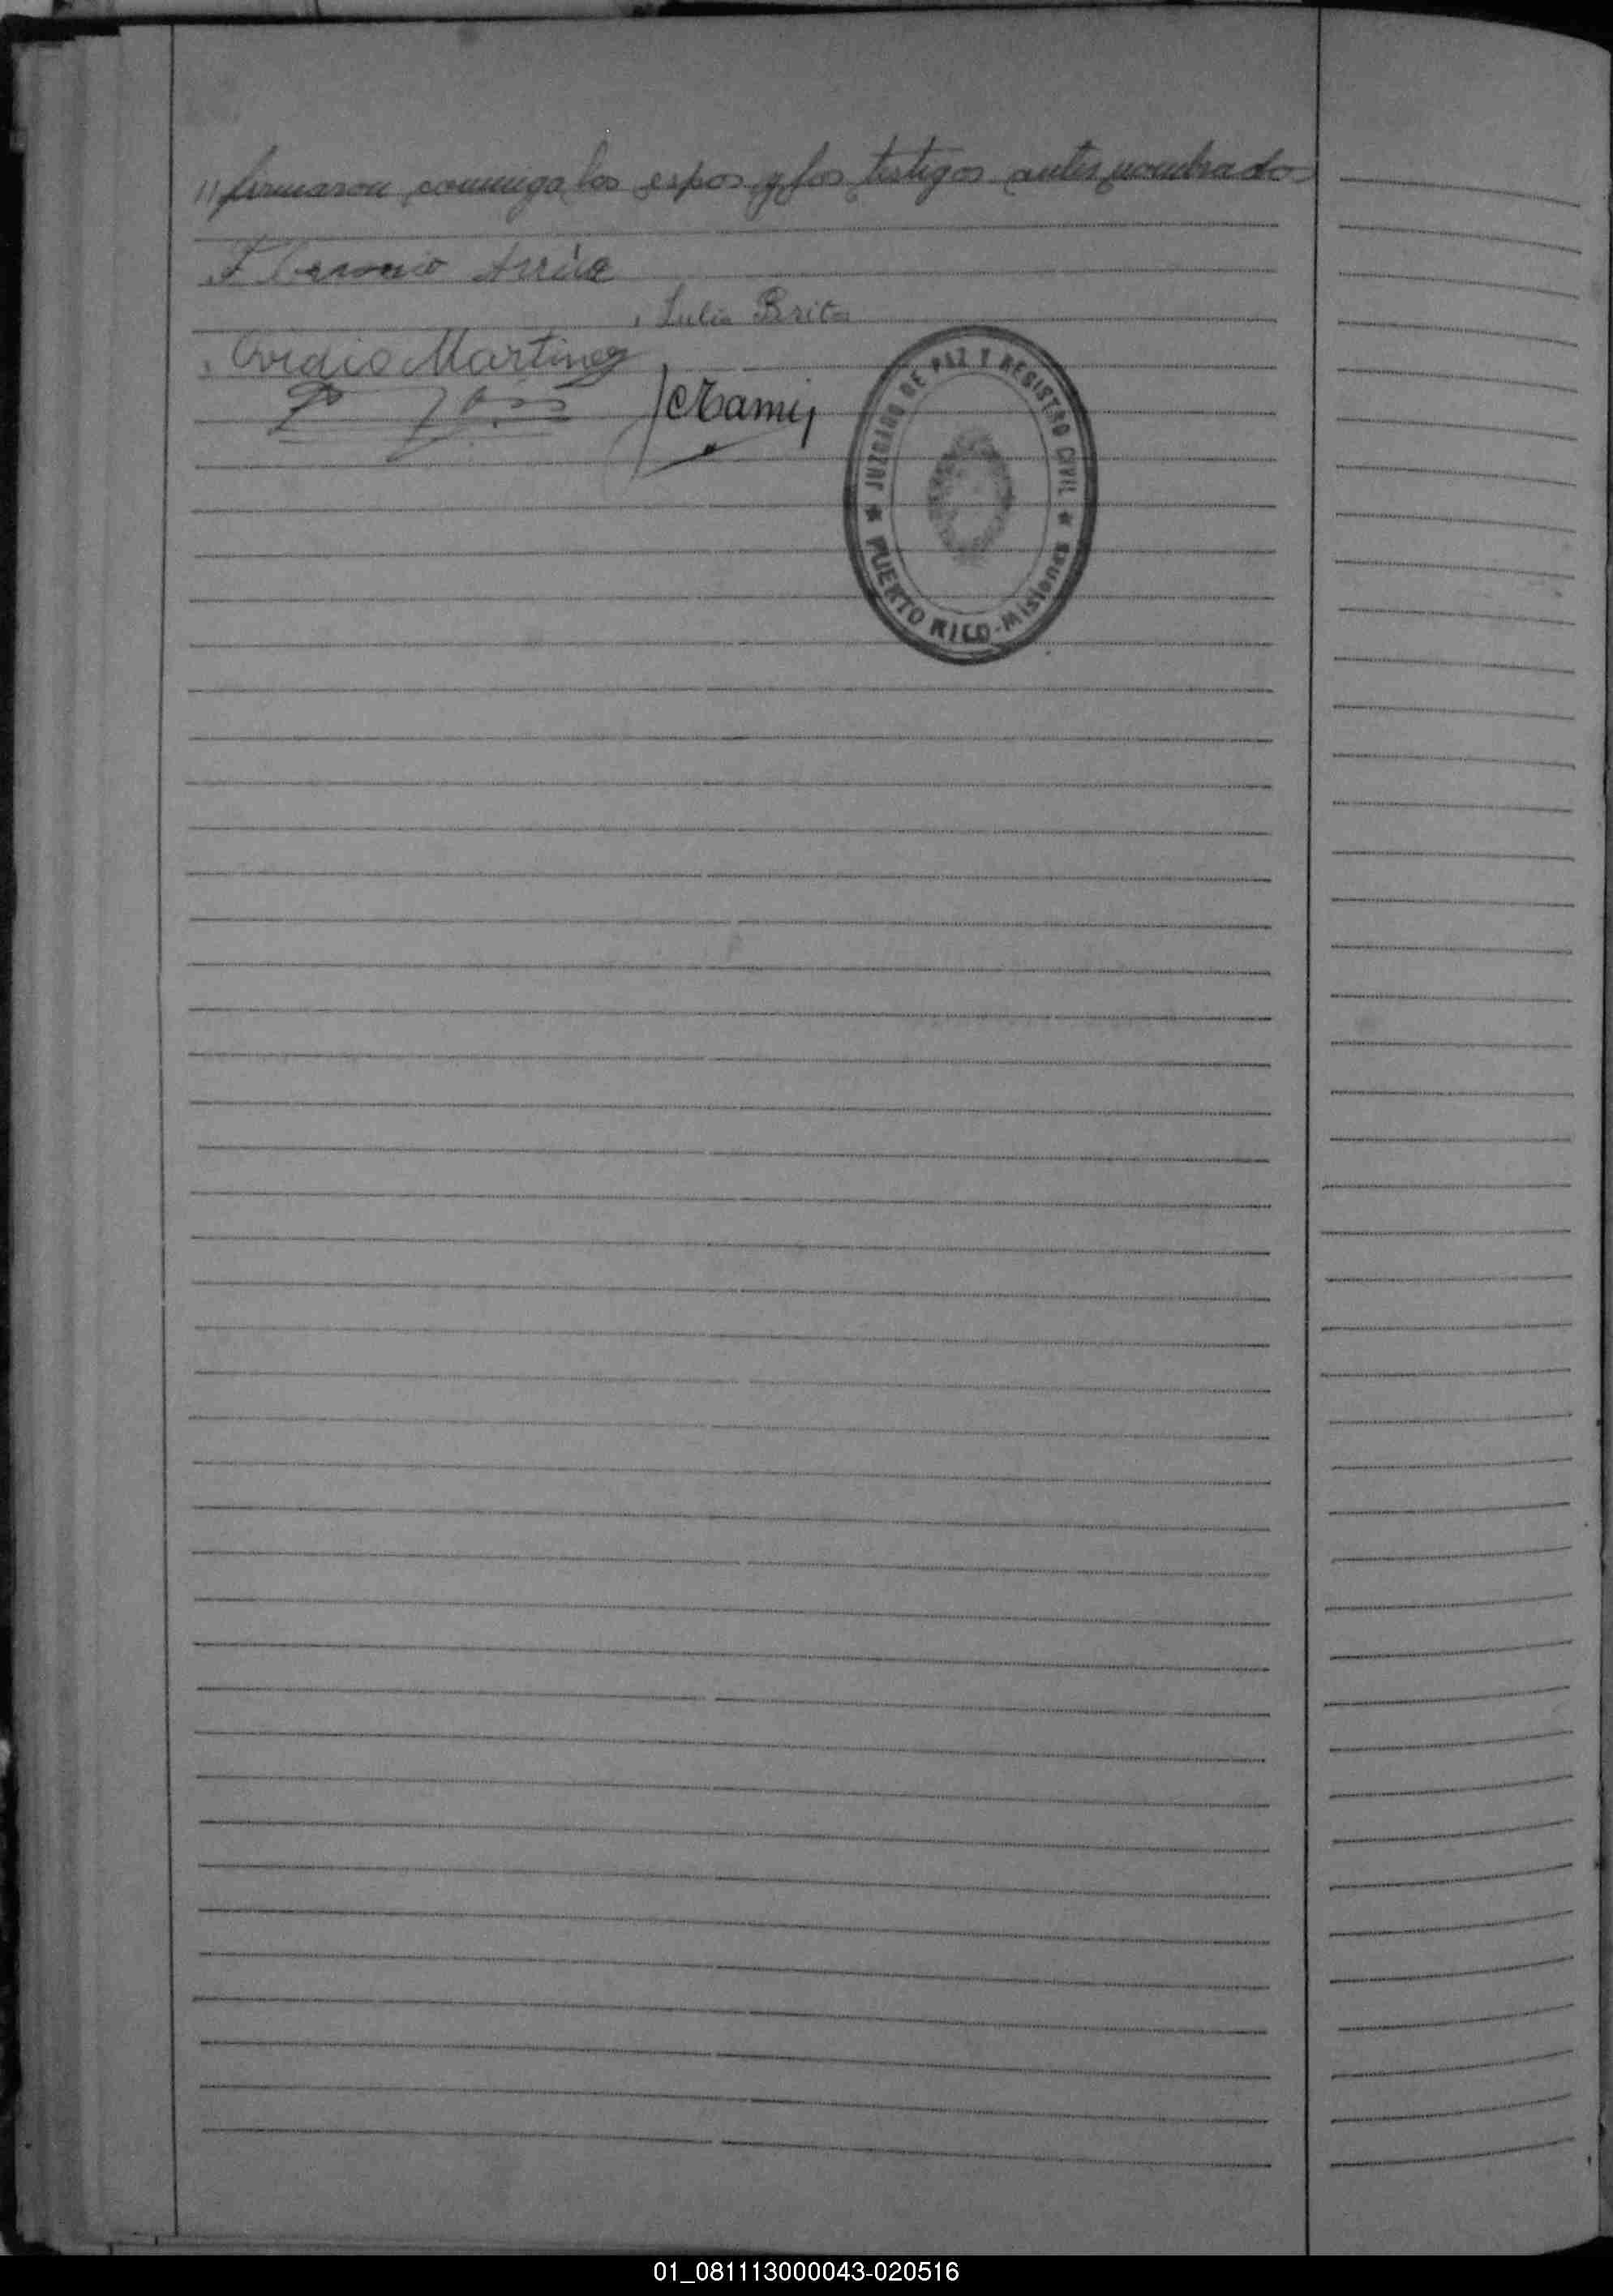 // firmaron conmigo los espos y los testigos antes nombrados
Julia Brito
Ovidio Martinez
JUZGADO DE PAZ Y REGISTRO CIVIL
PUERTO RICO-Misiones
01_081113000043-020516